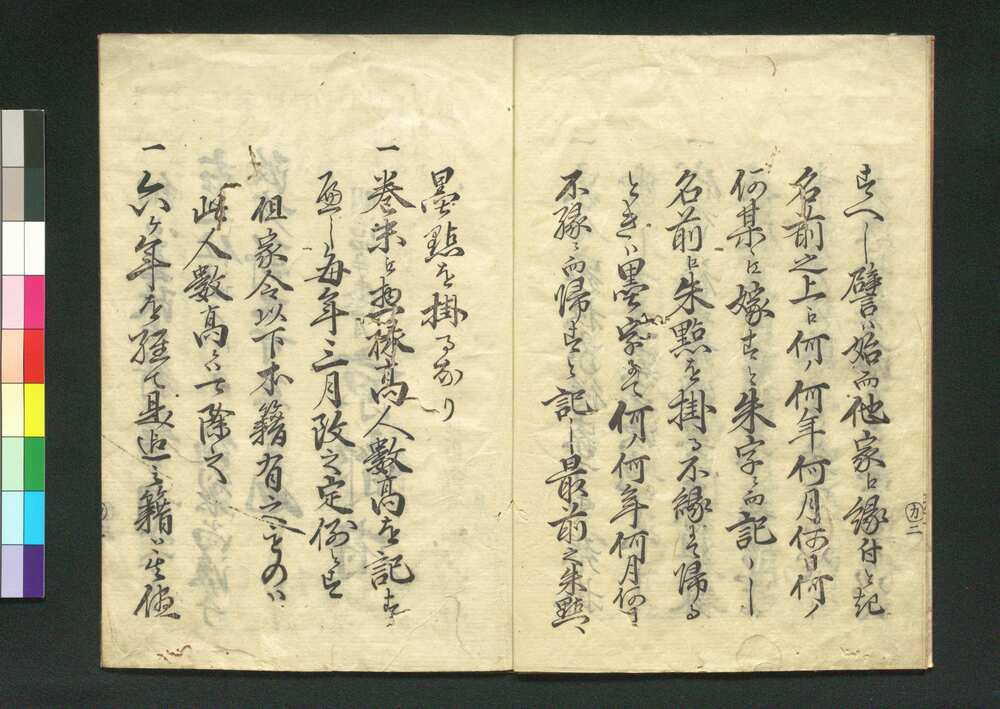 すへし譬ハ始而他家江縁付候節
名前之上江何ノ何年何月何日何ノ
何某江嫁すと朱字ニ而記へし
名前江朱點を掛る不縁ニて帰る
ときハ墨字にて何ノ何年何月何日
不縁ニ而帰すと記し最前之朱點ハ
墨點を掛るなり
一 巻末江惣禄高人数高を記す
へし毎年三月改之定例とす
但家令以下本籍有之ものハ
此人数高ニて除之
一 六ヶ年を経て是迄之籍ハ其儘
カ二